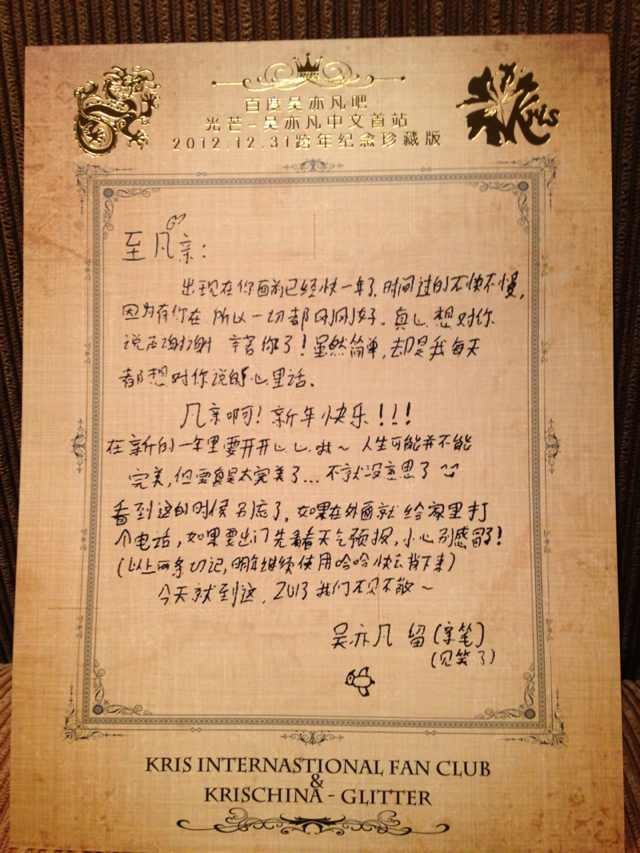 百度吴亦凡吧
光芒-吴亦凡中文首站
2012.12.31跨年纪念珍藏版
Kris
至凡亲:
出现在你面前已经快一年了,时间过的不快不慢,
因为有你在 所以一切都刚刚好。真心想对你
说声谢谢 辛苦你了!虽然简单,却是我每天
都想对你说的心里话。
凡亲啊!新年快乐!!!
在新的一年里要开开心心哦~ 人生可能并不能
完美,但要真是太完美了...不就没意思了
看到这的时候别忘了,如果在外面就 给家里打
个电话,如果要出门先看看天气预报,小心别感冒了!
(以上两条切记,明年继续使用哈哈 快去背下来)
今天就到这,2013 我们不见不散~
吴亦凡 留(亲笔)
(见笑了)
KRIS INTERNASTIONAL FAN CLUB
&
KRISCHINA - GLITTER